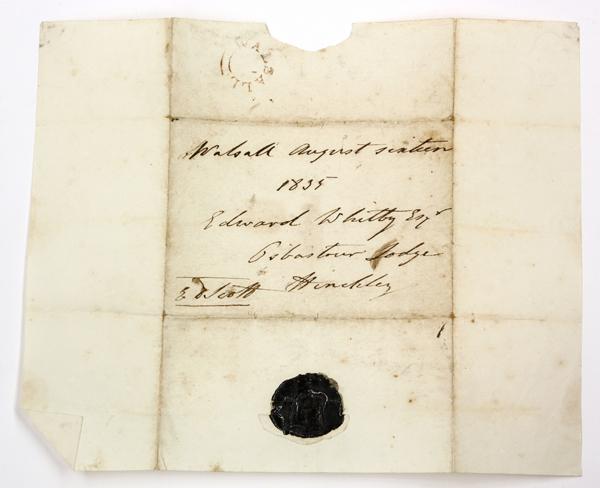 WALSALL
Walsall August sixteen
1835
Edward Whitby Esqr
Osbaston Lodge
Hinckley
E. D Scott